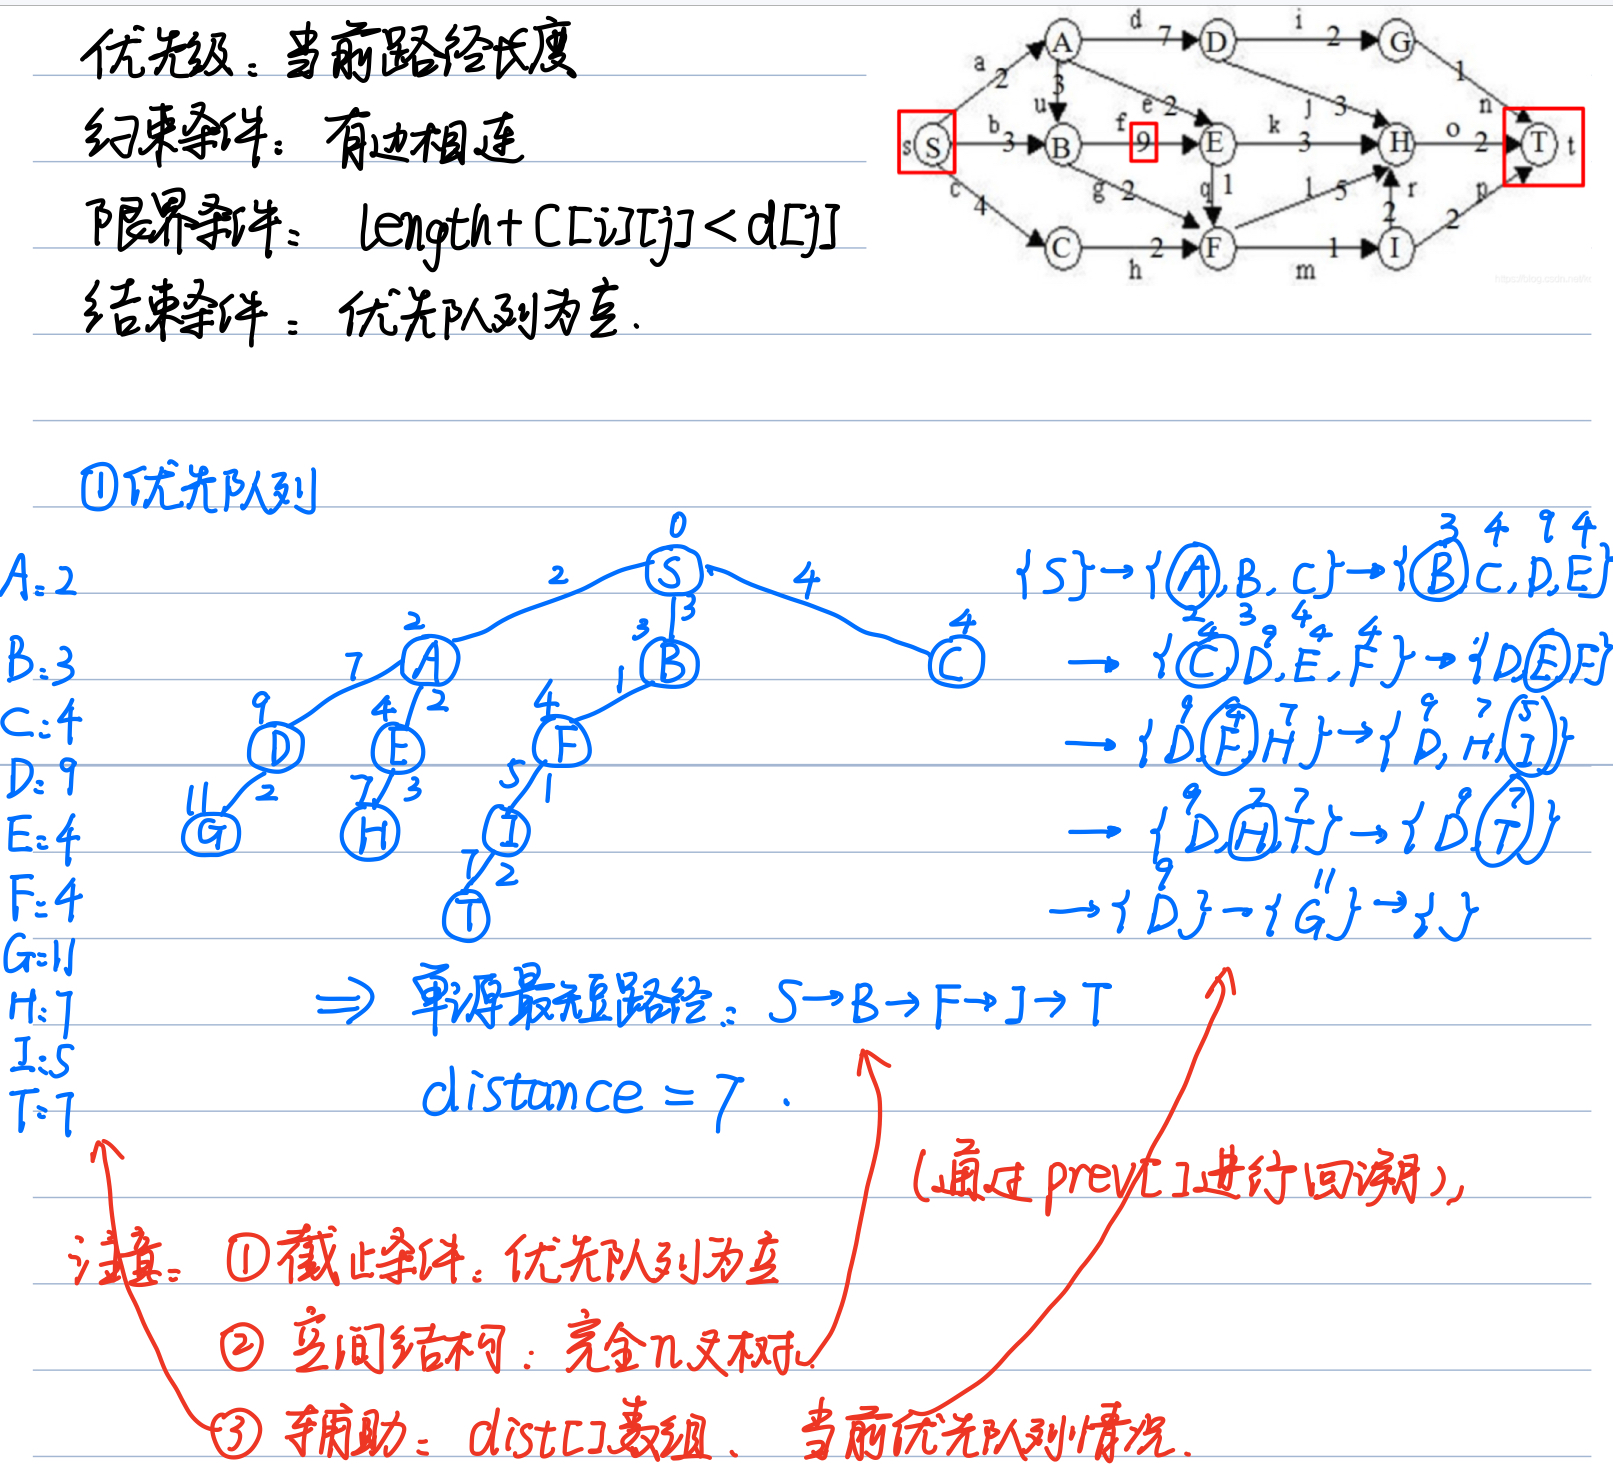 优先级：当前路径长度
约束条件：有边相连
限界条件：length+C[i][j]<d[j]
结束条件：优先队列为空.
a 2 A d 7 D i 2 G
3 u e 2 j 3 1 n
s S b 3 B f 9 E k 3 H o 2 T t
c 4 g 2 q 1 l 5 2 r p 2
C h 2 F m 1 I
①优先队列
0
S
2 3 4
2 A 3 B 4 C
7 2 1
9 D 4 E 4 F
2 3 5 1
11 G 7 H I
7 2
T
A:2
B:3
C:4
D:9
E:4
F:4
G:11
H:7
I:5
T:7
3 4 9 4
{S}→{A,B,C}→{B,C,D,E}
2 3 4
4 9 4 4
→{C,D,E,F}→{D,E,F}
9 4 7 9 7 5
→{D,F,H}→{D,H,I}
9 7 7 9 7
→{D,H,T}→{D,T}
9 11
→{D}→{G}→{}
⇒单源最短路径：S→B→F→I→T
distance=7.
(通过prev[]进行回溯),
注意：①截止条件：优先队列为空
②空间结构：完全n叉树.
③辅助：dist[]数组、当前优先队列情况.